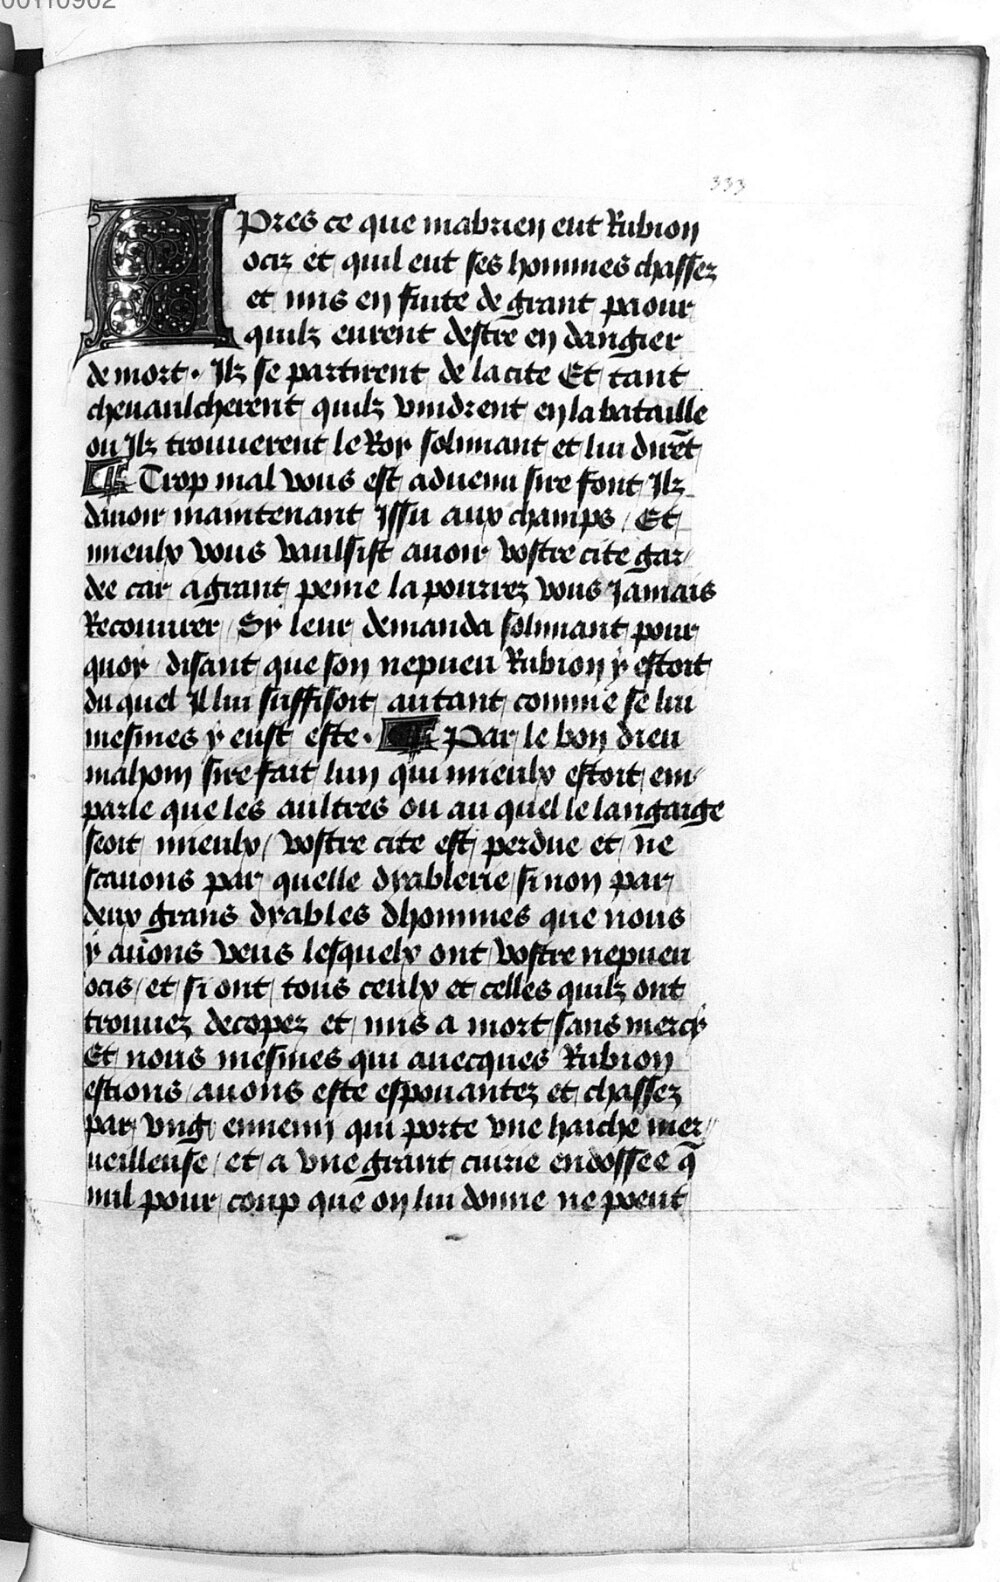 00110902
333
Apres ce que mabrien eut Rubion
ocis et quil eut ses hommes chassez
et mis en fuite de grant paour
quilz eurent destre en dangier
de mort. Ilz se partirent de la cite Et tant
cheuaulcherent quilz vindrent en la bataille
ou Ilz trouuerent le Roy solimant et lui dirēt
¶ Trop mal vous est aduenu sire font Ilz
dauoir maintenant Issu aux champs / Et
mieulx vous vaulsist auoir vostre cite gar/
dee car a grant peine la pourrez vous Jamais
Recouurer / Sy leur demanda solimant pour
quoy / disant que son nepueu Rubion y estoit
du quel Il lui suffisoit autant comme se lui
mesmes y eust este. ¶ Par le bon dieu
mahom sire fait lun qui mieulx estoit em/
parle que les aultres ou au quel le langaige
seoit mieulx / vostre cite est perdue et ne
scauons par quelle dyablerie si non par
deux grans dyables dhommes que nous
y auons veus lesquelx ont vostre nepueu
ocis / et si ont tous ceulx et celles quilz ont
trouuez decopez et mis a mort sans mercy
Et nous mesmes qui auecques Rubion
estions / auons este espouantez et chassez
par vng ennemi qui porte vne haiche mer/
ueilleuse / et a vne grant cuirie endossee q̄
nul pour coup que on lui donne ne poeut